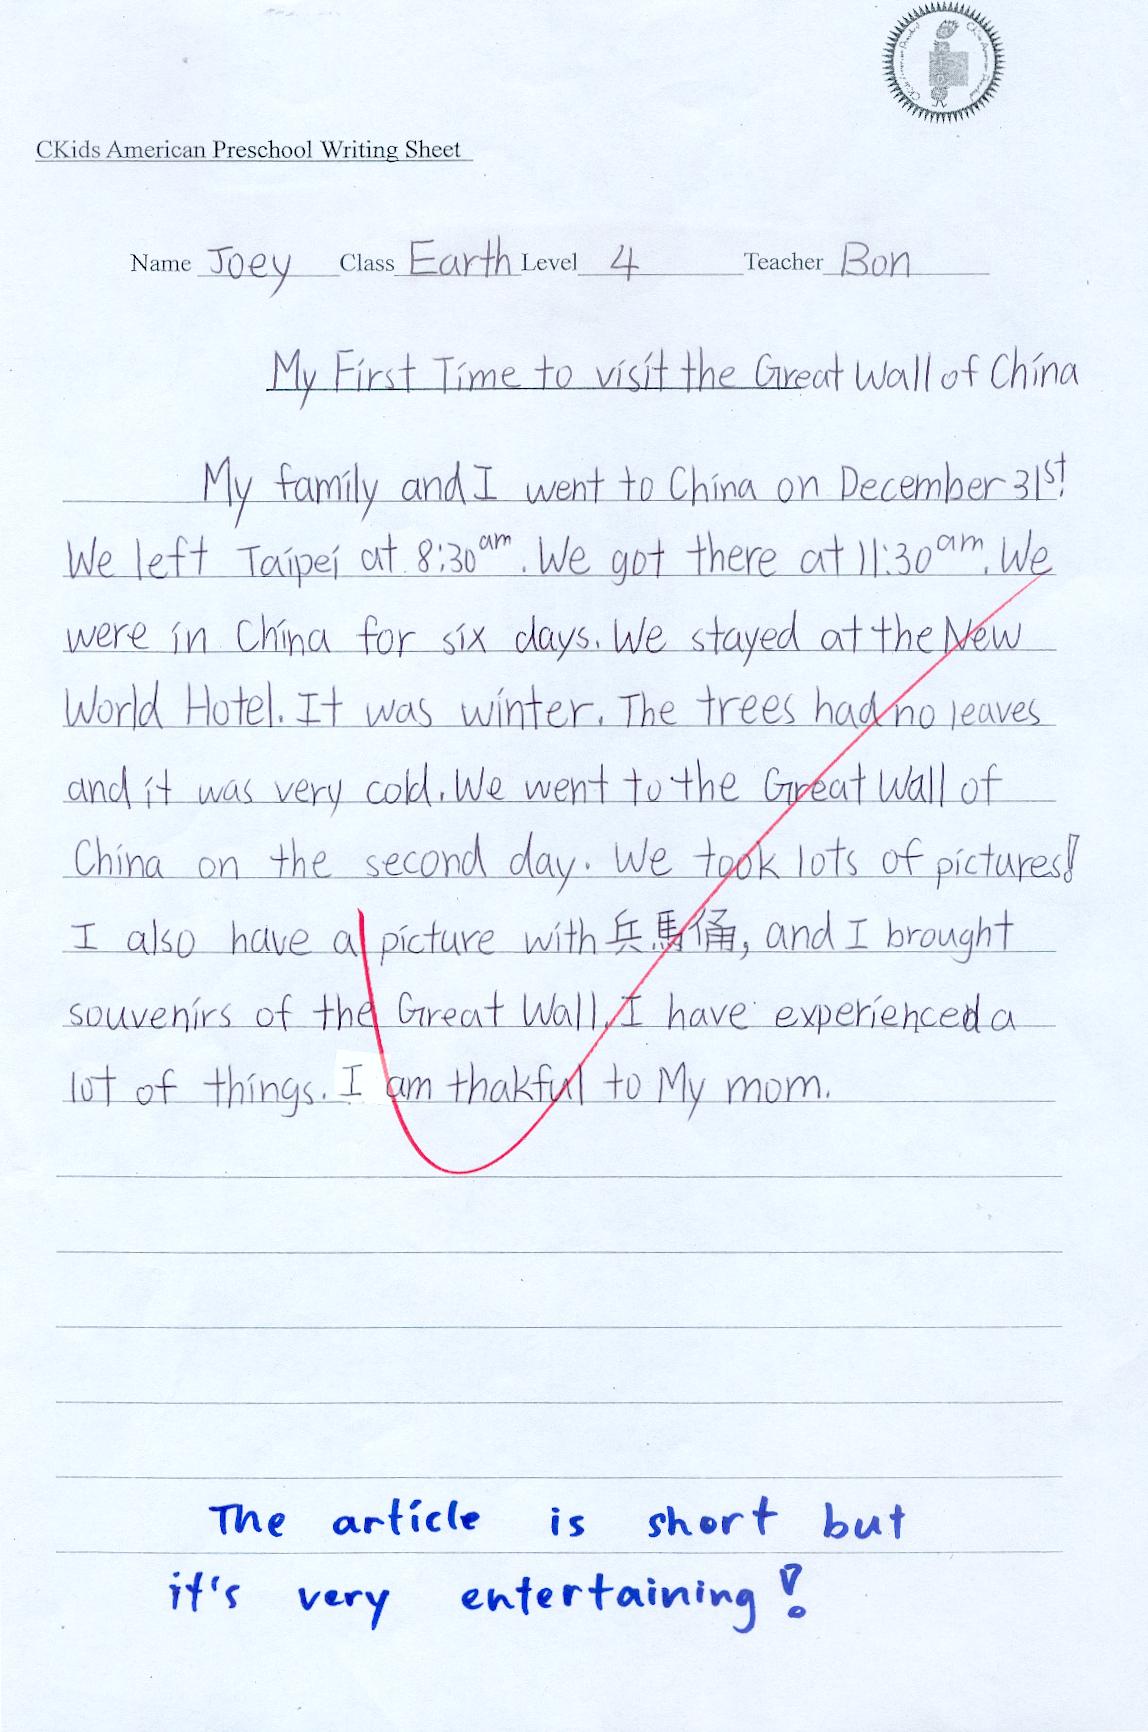 CKids American Preschool Writing Sheet
Name Joey Class Earth Level 4 Teacher Bon
My First Time to visit the Great Wall of China
My family and I went to China on December 31st!
We left Taipei at 8:30am. We got there at 11:30am. We
were in China for six days. We stayed at the New
World Hotel. It was winter. The trees had no leaves
and it was very cold. We went to the Great Wall of
China on the second day. We took lots of pictures!
I also have a picture with 兵馬俑, and I brought
souvenirs of the Great Wall. I have experienced a
lot of things. I am thakful to My mom.
The article is short but
it's very entertaining!